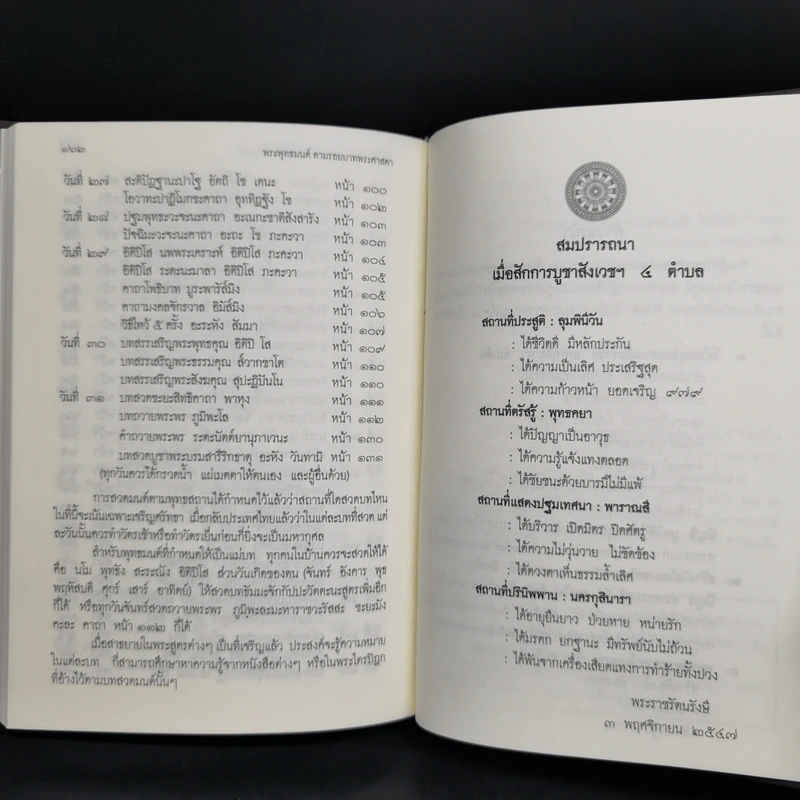 ๑๖๒ พระพุทธมนต์ ตามรอยบาทพระศาสดา
วันที่ ๒๗ สะติปัฏฐานะปาโฐ อัตถิ โข เตนะ หน้า ๑๐๐
โอวาทะปาฏิโมกขะคาถา อุททิฏฐัง โข หน้า ๑๐๒
วันที่ ๒๘ ปฐมพุทธะวะจะนะคาถา อะเนกะชาติสังสารัง หน้า ๑๐๓
ปัจฉิมะวะจะนะคาถา อะถะ โข ภะคะวา หน้า ๑๐๓
วันที่ ๒๙ อิติปิโส นพพระเคราะห์ อิติปิโส ภะคะวา หน้า ๑๐๔
อิติปิโส ระตะนะมาลา อิติปิโส ภะคะวา หน้า ๑๐๕
คาถาโพธิบาท บูระพารัสมิง หน้า ๑๐๕
คาถามงคลจักรวาล อิมัสมิง หน้า ๑๐๖
วิธีไหว้ ๕ ครั้ง อะระหัง สัมมา หน้า ๑๐๗
วันที่ ๓๐ บทสรรเสริญพระพุทธคุณ อิติปิ โส หน้า ๑๐๙
บทสรรเสริญพระธรรมคุณ ส์วากขาโต หน้า ๑๑๐
บทสรรเสริญพระสังฆคุณ สุปะฏิปันโน หน้า ๑๑๐
วันที่ ๓๑ บทสวดชะยะสิทธิคาถา พาหุง หน้า ๑๑๑
บทถวายพระพร ภูมิพะโล หน้า ๑๑๒
คำถวายพระพร ระตะนัตต์ยานุภาเวนะ หน้า ๑๓๐
บทสวดบูชาพระบรมสารีริกธาตุ อะหัง วันทามิ หน้า ๑๓๑
(ทุกวันควรได้กรวดน้ำ แผ่เมตตาให้ตนเอง และผู้อื่นด้วย)
การสวดมนต์ตามพุทธสถานได้กำหนดไว้แล้วว่าสถานที่ใดสวดบทไหน
ในที่นี้จะเน้นเฉพาะเจริญศรัทธา เมื่อกลับประเทศไทยแล้วว่าในแต่ละบทที่สวด แต่
ละวันนั้นควรทำวัตรเช้าหรือทำวัตรเย็นก่อนก็ยิ่งจะเป็นมหากุศล
สำหรับพุทธมนต์ที่กำหนดให้เป็นแม่บท ทุกคนในบ้านควรจะสวดให้ได้
คือ นโม พุทธัง สะระณัง อิติปิโส ส่วนวันเกิดของตน (จันทร์ อังคาร พุธ
พฤหัสบดี ศุกร์ เสาร์ อาทิตย์) ให้สวดบทธัมมะจักกัปปะวัตตะนะสูตรเพิ่มอีก
ก็ได้ หรือทุกวันจันทร์สวดถวายพระพร ภูมิพะละมะหาราชวะรัสสะ ชะยะมัง
คะละ คาถา หน้า ๑๑๒ ก็ได้
เมื่อสาธยายในพระสูตรต่างๆ เป็นที่เจริญแล้ว ประสงค์จะรู้ความหมาย
ในแต่ละบท ก็สามารถศึกษาหาความรู้จากหนังสือต่างๆ หรือในพระไตรปิฎก
ที่อ้างไว้ตามบทสวดมนต์นั้นๆ
สมปรารถนา
เมื่อสักการบูชาสังเวชฯ ๔ ตำบล
สถานที่ประสูติ : ลุมพินีวัน
: ได้ชีวิตดี มีหลักประกัน
: ได้ความเป็นเลิศ ประเสริฐสุด
: ได้ความก้าวหน้า ยอดเจริญ ๙๗๙
สถานที่ตรัสรู้ : พุทธคยา
: ได้ปัญญาเป็นอาวุธ
: ได้ความรู้แจ้งแทงตลอด
: ได้ชัยชนะด้วยบารมีไม่มีแพ้
สถานที่แสดงปฐมเทศนา : พาราณสี
: ได้บริวาร เปิดมิตร ปิดศัตรู
: ได้ความไม่วุ่นวาย ไม่ขัดข้อง
: ได้ดวงตาเห็นธรรมล้ำเลิศ
สถานที่ปรินิพพาน : นครกุสินารา
: ได้อายุยืนยาว ป่วยหาย หน่ายรัก
: ได้มรดก ยกฐานะ มีทรัพย์นับไม่ถ้วน
: ได้พ้นจากเครื่องเสียดแทงการทำร้ายทั้งปวง
พระราชรัตนรังษี
๓ พฤศจิกายน ๒๕๔๗